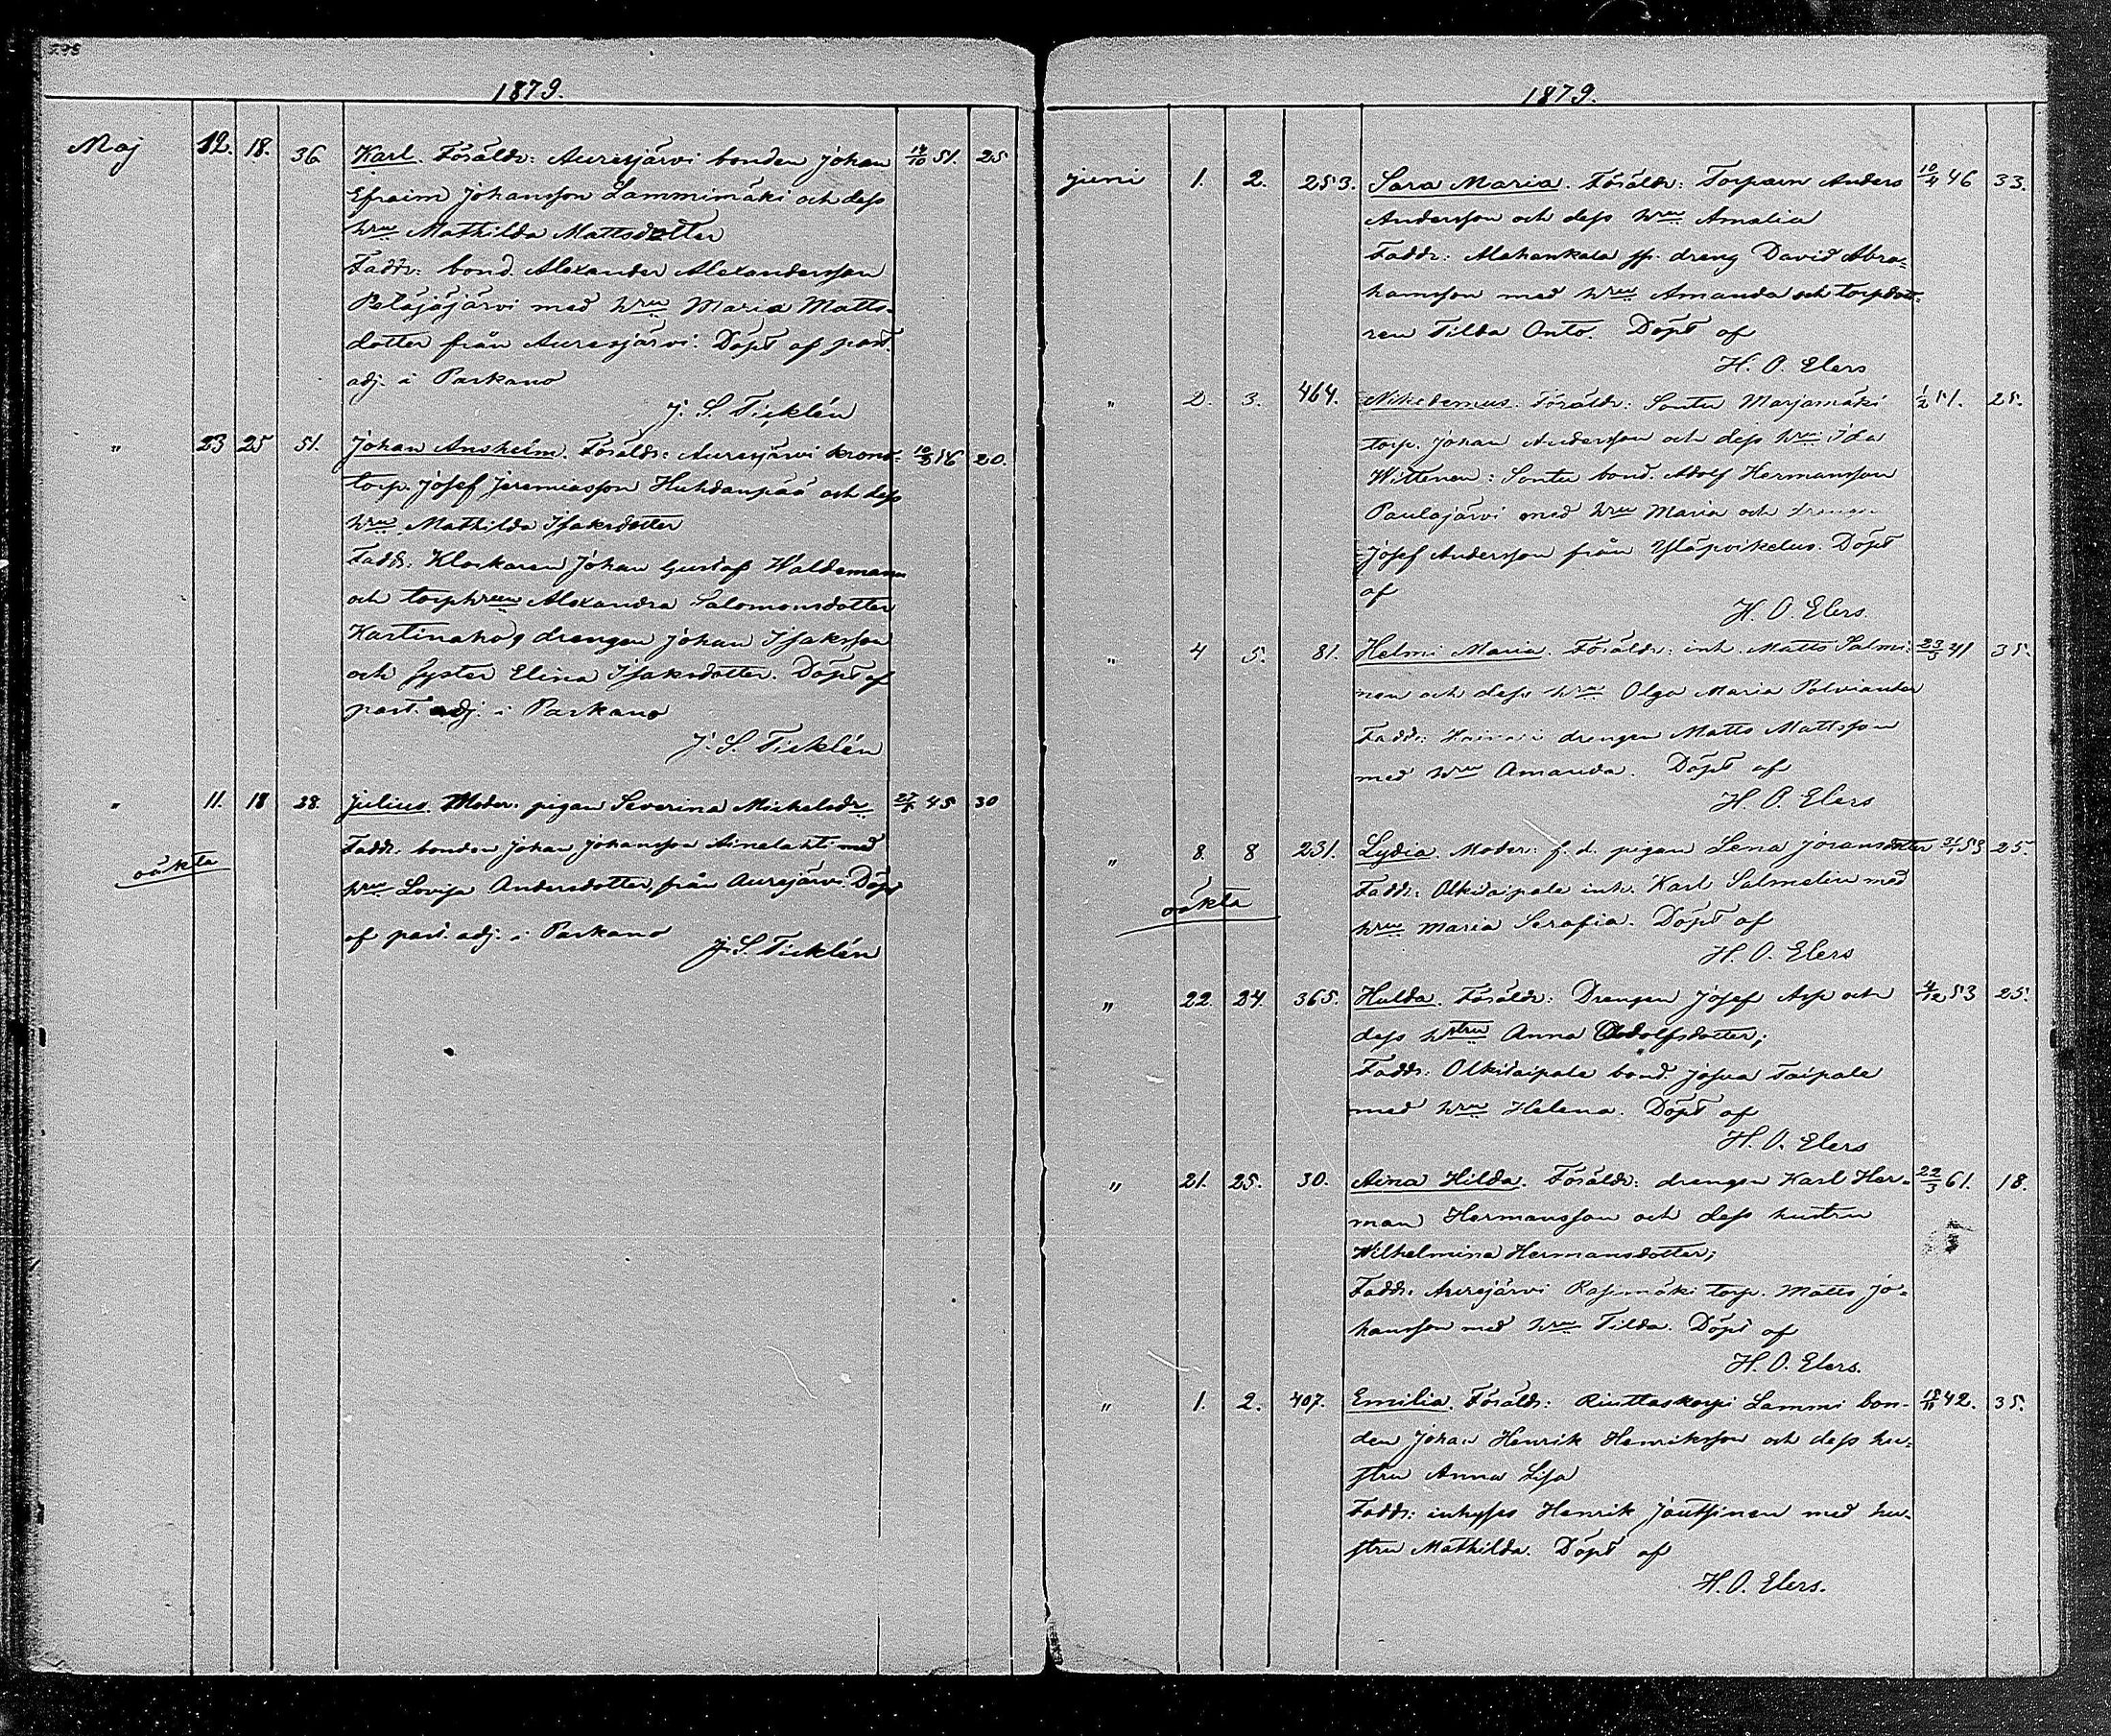 1879.
Maj 12. 18. 36 Karl. Föräldr: Aurejärvi bonden Johan 51. 25
Efraim Johansson Lammimäki och dess
hru Mathilda Mattsdotter
Faddr: bond. Alexander Alexandersson
Petäjäjärvi med hru Maria Matts-
dotter från Aurejärvi. Döpt af past.
adj. i Parkano
J. S. Ticklén
" 23 25 51. Johan Anshelm. Föräldr: Aurejärvi krono- 20.
torp. Josef Jeremiasson Huhdanpää och dess
hru Mathilda Isaksdotter
Faddr. Klockaren Johan Gustaf Waldemann
och torphrun Alexandra Salomonsdotter
drengen Johan Isaksson
och syster Elina Isaksdotter. Döpt af
past. adj. i Parkano
J. S. Ticklén
" 11. 18 38. Julius. Moder: pigan Severina Mickelsdr 45 30
Faddr. bonden Johan Johansson Ainelahti med
oäkta
hru Lovisa Andersdotter, från Aurejärvi. Döpt
af past. adj. i Parkano
J. S. Ticklén
1879.
Juni 1. 2. 253. Sara Maria. Föräldr: Torparn Anders 10/4 46 33.
Andersson och dess hru Amalia
Faddr: Alahankala dreng David Abra-
hamsson med hru Amanda och torpdott-
ren Tilda Onto. Döpt af
H. O. Elers
" 2. 3. 464. Nikodemus. Föräldr: Sontu Marjamäki 25.
torp. Johan Andersson och dess hru Ida
Wittenen: Sontu bond. Adolf Hermansson
Paulajärvi med hru Maria och drengen
Josef Andersson från Döpt
af
H. O. Elers.
" 4 5. 81. Helmi Maria. Föräldr: inh. Matts Salmi- 41 35.
nen och dess hru Olga Maria Palviander
Faddr: drengen Matts Mattsson
med hru Amanda. Döpt af
H. O. Elers
" 8. 8 231. Lydia. Moder: f. d. pigan Lena Joransdotter 53 25.
oäkta
Faddr: Olkitaipale inh. Karl Salmelin med
hru Maria Serafia. Döpt af
H. O. Elers
" 22. 24. 365. Hulda. Föräldr: Drengen Josef Asp och 4/12 53 25.
dess hstru Anna Adolfsdotter;
Faddr: Olkitaipale bond. Josua Taipale
med hru Helena. Döpt af
H. O. Elers
" 21. 25. 30. Aina Hilda. Föräldr: drengen Karl Her- 22/3 61. 18.
man Hermansson och dess hustru
Wilhelmina Hermansdotter;
Faddr: Aurejärvi Rasimäki torp. Matts Jo-
hansson med hru Tilda. Döpt af
H. O. Elers.
" 1. 2. 407. Emilia. Föräldr: Riuttaskorpi Lammi bon- 42. 35.
den Johan Henrik Henriksson och dess hu-
stru Anna Lisa
Faddr: inhyses Henrik Joutsinen med hu-
stru Mathilda. Döpt af
H. O. Elers.